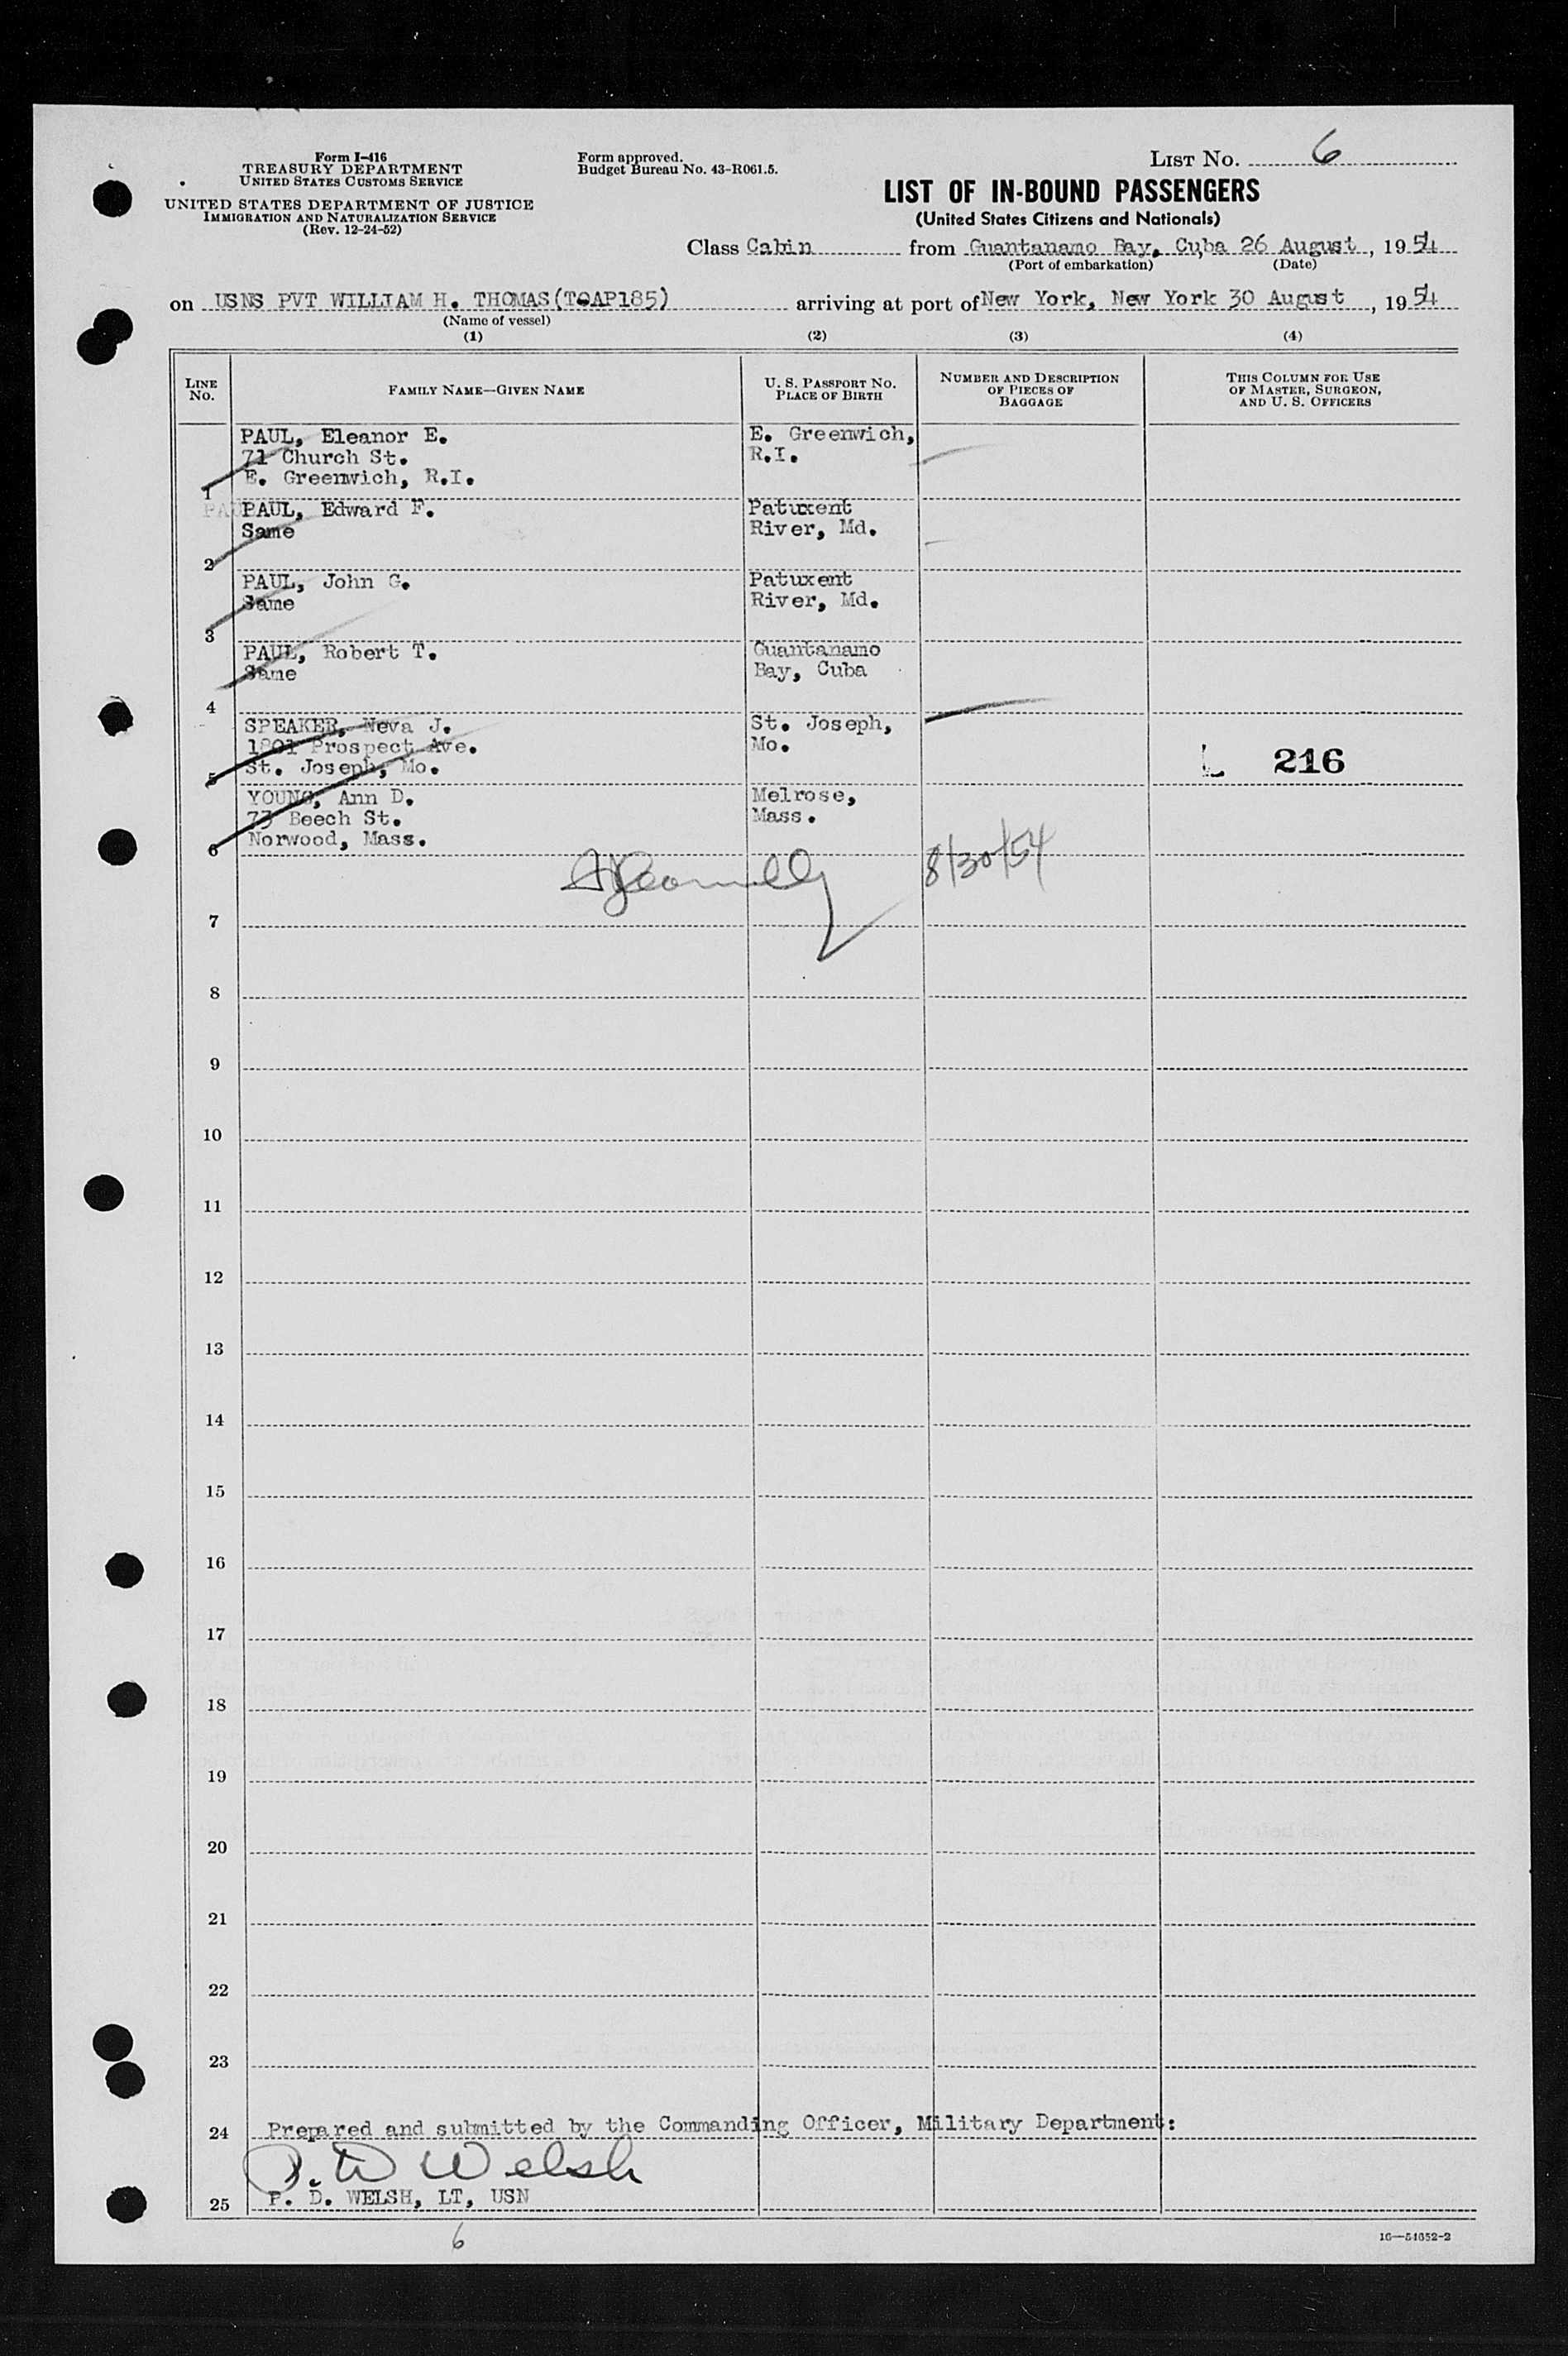 Form I-416
TREASURY DEPARTMENT
UNITED STATES CUSTOMS SERVICE
UNITED STATES DEPARTMENT OF JUSTICE
IMMIGRATION AND NATURALIZATION SERVICE
(Rev. 12-24-52)
Form approved.
Budget Bureau No. 43-R061.5.
LIST NO. 6
LIST OF IN-BOUND PASSENGERS
(United States Citizens and Nationals)
Class Cabin from Guantanamo Bay, Cuba 26 August, 1954
(Port of embarkation) (Date)
on USNS PVT WILLIAM H. THOMAS(TOAP185) arriving at port of New York, New York 30 August, 1954
(Name of vessel)
(1) (2) (3) (4)
LINE NO.
FAMILY NAME—GIVEN NAME
U. S. PASSPORT NO.
PLACE OF BIRTH
NUMBER AND DESCRIPTION
OF PIECES OF
BAGGAGE
THIS COLUMN FOR USE
OF MASTER, SURGEON,
AND U. S. OFFICERS
PAUL, Eleanor E. E. Greenwich,
71 Church St. R.I.
E. Greenwich, R.I.
1
PAUL, Edward F. Patuxent
Same River, Md.
2
PAUL, John G. Patuxent
Same River, Md.
3
PAUL, Robert T. Guantanamo
Same Bay, Cuba
4
SPEAKER, Neva J. St. Joseph,
1801 Prospect Ave. Mo.
St. Joseph, Mo. L 216
5
YOUNG, Ann D. Melrose,
73 Beech St. Mass.
Norwood, Mass.
6
8/30/54
7
8
9
10
11
12
13
14
15
16
17
18
19
20
21
22
23
24 Prepared and submitted by the Commanding Officer, Military Department:
P. D. Welsh
25 P. D. WELSH, LT, USN
6
16—54652-2